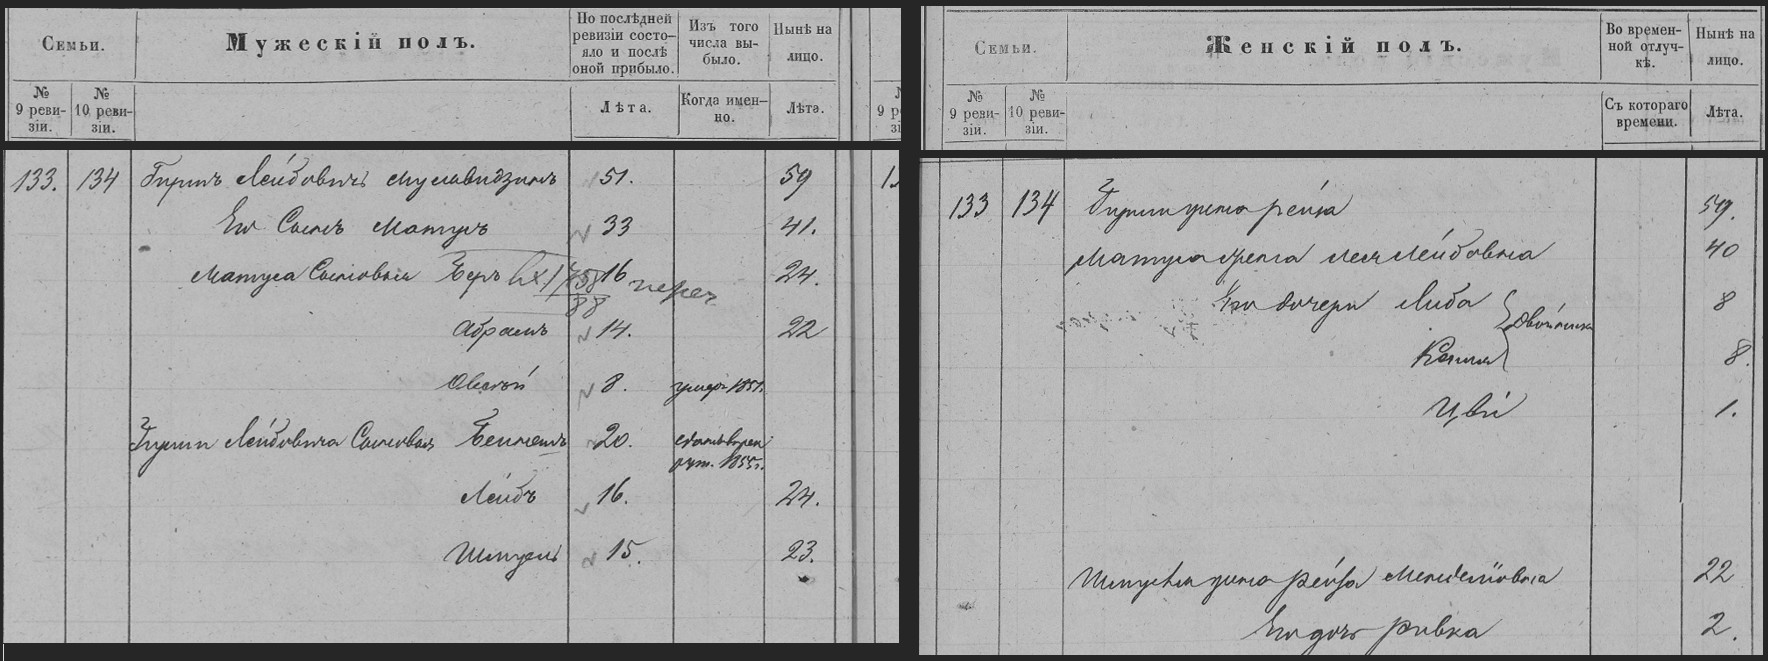 Семьи.
Мужескій полъ.
По послѣдней ревизіи состо-
яло и послѣ
оной прибыло.
Изъ того
числа вы-
было.
Нынѣ на
лицо.
№
9 реви-
зіи.
№
10 реви-
зіи.
Лѣта.
Когда имен-
но.
Лѣта.
133. 134 Гиршъ Лейбовичъ 51. 59
Его Сынъ Матусъ 33 41.
Матуса Сыновья Беръ 16 переч 24.
Абрамъ 14. 22
Овсей 8. умеръ 1851.
Гирши Лейбовича Сыновья 20. рун. 1855г.
Лейбъ 16. 24.
Шмуель 15. 23.
Семьи.
Женскій полъ.
Во времен-
ной отлуч-
кѣ.
Нынѣ на
лицо.
№
9 реви-
зіи.
№
10 реви-
зіи.
Съ котораго
времени.
Лѣта.
133 134 Гирши жена Рейза 59.
Матуса жена Лея Лейбовна 40
Его дочери Либа 8
двойники
8.
Цви 1.
Шмуеля жена Рейза Менделіовна 22
Его дочь Ривка 2.